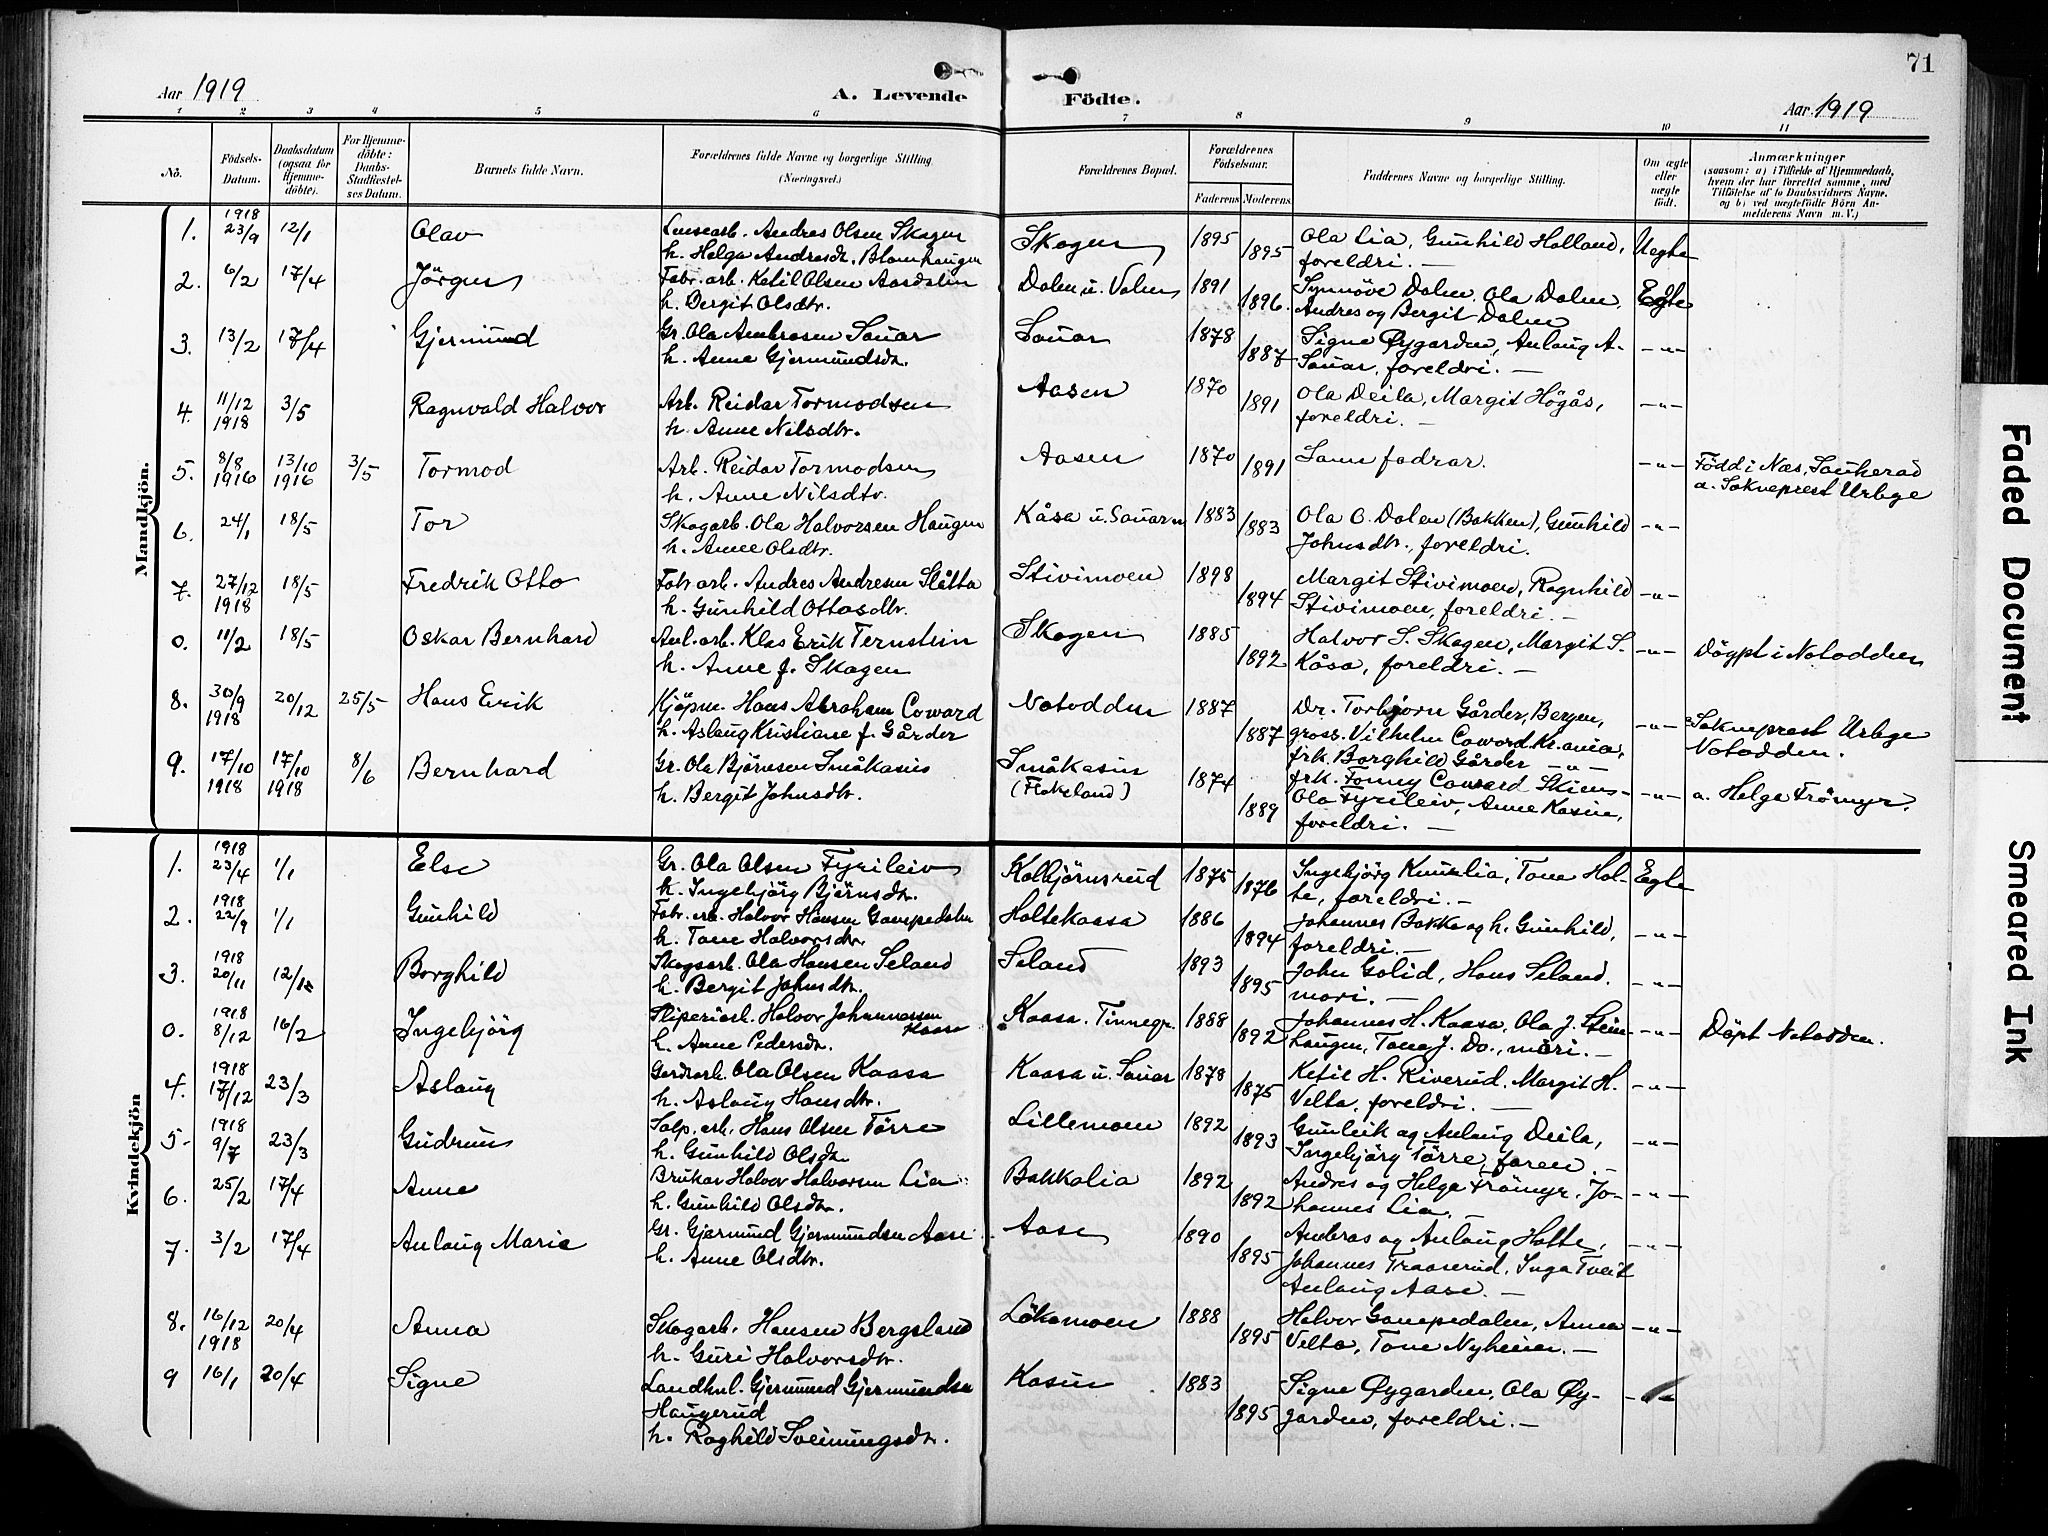 71
Aar 1919
A. Levende
Födte.
Aar 1919
1 2 3 4 5 6 7 8 9 10 11
No.
Födsels-
Datum.
Daabsdatum
(ogsaa for
Hjemme-
döbte).
For Hjemme-
döbte:
Daabs-
Stadfæstel-
ses Datum.
Barnets fulde Navn.
Forældrenes fulde Navne og borgerlige Stilling.
(Næringsvei.)
Forældrenes Bopæl.
Forældrenes
Födselsaar.
Faderens Moderens
Faddernes Navne og borgerlige Stilling.
Om ægte
eller
uægte
födt.
Anmærkninger
(saasom: a) i Tilfælde af Hjemmedaab,
hvem der har forrettet samme, med
Tilföielse af to Daabsvidners Navne.
og b) ved uægtefödte Börn An-
melderens Navn m. V.)
Mandkjön.
1. 1918 23/9 12/1 Olav Andres Olsen Skogen Skogen 1895 Ola Lia, Gunhild Holland, Uegte
h. Helga Andresdr. Blomhaugen 1895 foreldri. —
2. 6/2 17/4 Jörgen Fabr. arb. Ketil Olsen Aasdalen Dalen u. Valen 1891 Synnöve Dalen, Ola Dalen, Egte
h. Bergit Olsdtr. 1896. Andres og Bergit Dalen
3. 13/2 17/4 Gjermund Gr. Ola Ambrosen Sauar Sauar 1878 Signe Øygarden, Aulaug A- —"—
h. Anne Gjermundsdr. 1887 Sauar, foreldri. —
4. 11/12 1918 3/5 Ragnvald Halvor Arb. Reidar Tormodsen Aasen 1870 Ola Deila, Margit Högås, —"—
h. Anne Nilsdtr. 1891 foreldri. —
5. 8/8 1916 13/10 1916 3/5 Tormod Arb. Reidar Tormodsen Aasen 1870 Same fadrar. —"— Född i Næs, Sauherad
h. Anne Nilsdtr. 1891 a. Sokneprest Urbye
6. 24/1 18/5 Tor Skogarb. Ola Halvorsen Haugen Kåsa u. Sauar 1883 Ola O. Dalen (Bakken), Gunhild —"—
h. Anne Olsdtr. 1883 Johnsdtr., foreldri.
7. 27/12 1918 18/5 Fredrik Otto Fabr arb. Andres Andresen Slåtta Stivimoen 1898 Margit Stivimoen, Ragnhild —"—
h. Gunhild Ottosdtr. 1894 Stivimoen, foreldri. —
0. 11/2 18/5 Oskar Bernhard Anl. arb. Klas Erik Ternstein Skogen 1885 Halvor S. Skogen, Margit S. —"— Döypt i Notodden
h. Anne f. Skogen 1892 Kåsa, foreldri. —
8. 30/9 1918 20/12 25/5 Hans Erik Kjöpm. Hans Abraham Coward Notodden 1887 Dr. Torbjörn Gårder, Bergen, —"— Sokneprest Urbye
h. Aslaug Kristiane f. Gårder 1887 gross. Vilhelm Coward Kr.ania, Notodden.
frk. Borghild Gårder —"—
frk. Fanny Coward Skiens-
9. 17/10 1918 17/10 1918 8/6 Bernhard Gr. Ola Björnsen Småkasin Småkasin 1874 Ola Fyrileiv, Anne Kasin, —"— a. Helge Frömyr.
h. Bergit Johnsdtr. (Flakeland) 1889 foreldri. —
Kvindekjön
1. 1918 23/4 1/1 Else Gr. Ola Olsen Fyrileiv Kolbjörnsrud 1875 Ingebjörg Knurlia, Tone Hol- Egte
h. Ingebjörg Björnsdtr. 1876 te, foreldri. —
2. 1918 22/9 1/1 Gunhild Fabr. arb. Halvor Hansen Gampedalen Holtekaasa 1886 Johannes Bakka og h. Gunhild, —"—
h. Tone Halvorsdtr. 1894 foreldri. —
3. 1918 20/11 Borghild Skogsarb. Ola Hansen Seland Seland 1893 John Golid, Hans Seland. —"—
h. Bergit Johnsdtr. 1895 mori. —
0. 1918 8/12 16/2 Ingebjörg Sliperiarb. Halvor Johannessen Kaasa Kaasa. Tinnegr. 1888 Johannes H. Kaasa, Ola J. Stein- —"— Döpt Notodden.
h. Anne Pedersdtr. 1892 haugen, Tone J. Do., mori. —
4. 1918 17/12 23/3 Aslaug Ola Olsen Kaasa Kaasa u. Sauar 1878 Ketil H. Riverud, Margit H. —"—
h. Aslaug Hansdtr. 1875 Velta, foreldri. —
5. 1918 9/7 23/3 Gudrun Salp. arb. Hans Olsen Törre Lillemoen 1892 Gunleik og Aulaug Deila, —"—
h. Gunhild Olsdtr 1893 Ingebjörg Törre, faren. —
6. 25/2 17/4 Anne Brukar Halvor Halvorsen Lia Bakkalia 1892 Andres og Helga Frömyr. Jo- —"—
h. Gunhild Olsdtr. 1892 hannes Lia.
7. 3/2 17/4 Aulaug Marie Gr. Gjermund Gjermundsen Aase Aase 1890 Andreas og Aulaug Holte, —"—
h. Anne Olsdtr. 1895 Johannes Traaserud, Inga Tveit
Aulaug Aase. —
8. 16/12 1918 20/4 Anna Skogarb. Hansen Bergsland Lökamoen 1888 Halvor Gampedalen, Anna —"—
h. Guri Halvorsdtr. 1895 Velta, Tone Nyheim. —
9 16/1 20/4 Signe Landhnl. Gjermund Gjermundsen Kasin 1883 Signe Øygarden, Ola Øy- —"—
Haugerud 1895 garden, foreldri. —
h. Raghild Sveinungsdr.
Faded Document
Smeared Ink